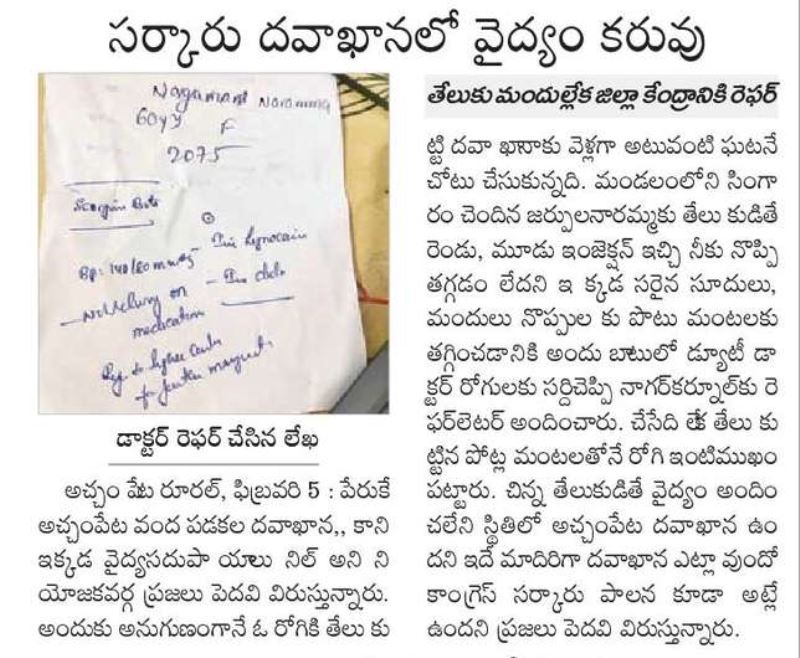 సర్కారు దవాఖానలో వైద్యం కరువు
Nagamani Naramma
60yy F
2075
Scorpion Bite
BP: 140/80 mmHg
- Inj lignocain
- Inj diclo
- Not relieving on
medication
Ref to higher center
for further
డాక్టర్ రెఫర్ చేసిన లేఖ
అచ్చం పేట రూరల్, ఫిబ్రవరి 5 : పేరుకే
అచ్చంపేట వంద పడకల దవాఖాన,, కాని
ఇక్కడ వైద్యసదుపా యాలు నిల్ అని ని
యోజకవర్గ ప్రజలు పెదవి విరుస్తున్నారు.
అందుకు అనుగుణంగానే ఓ రోగికి తేలు కు
తేలుకు మందుల్లేక జిల్లా కేంద్రానికి రెఫర్
ట్టి దవా ఖానాకు వెళ్లగా అటువంటి ఘటనే
చోటు చేసుకున్నది. మండలంలోని సింగా
రం చెందిన జర్పులనారమ్మకు తేలు కుడితే
రెండు, మూడు ఇంజెక్షన్ ఇచ్చి నీకు నొప్పి
తగ్గడం లేదని ఇ క్కడ సరైన సూదులు,
మందులు నొప్పుల కు పొటు మంటలకు
తగ్గించడానికి అందు బాటులో డ్యూటీ డా
క్టర్ రోగులకు సర్దిచెప్పి నాగర్‌కర్నూల్‌కు రె
ఫర్‌లెటర్ అందించారు. చేసేది లేక తేలు కు
ట్టిన పోట్ల మంటలతోనే రోగి ఇంటిముఖం
పట్టారు. చిన్న తేలుకుడితే వైద్యం అందిం
చలేని స్థితిలో అచ్చంపేట దవాఖాన ఉం
దని ఇదే మాదిరిగా దవాఖాన ఎట్లా వుందో
కాంగ్రెస్ సర్కారు పాలన కూడా అట్లే
ఉందని ప్రజలు పెదవి విరుస్తున్నారు.